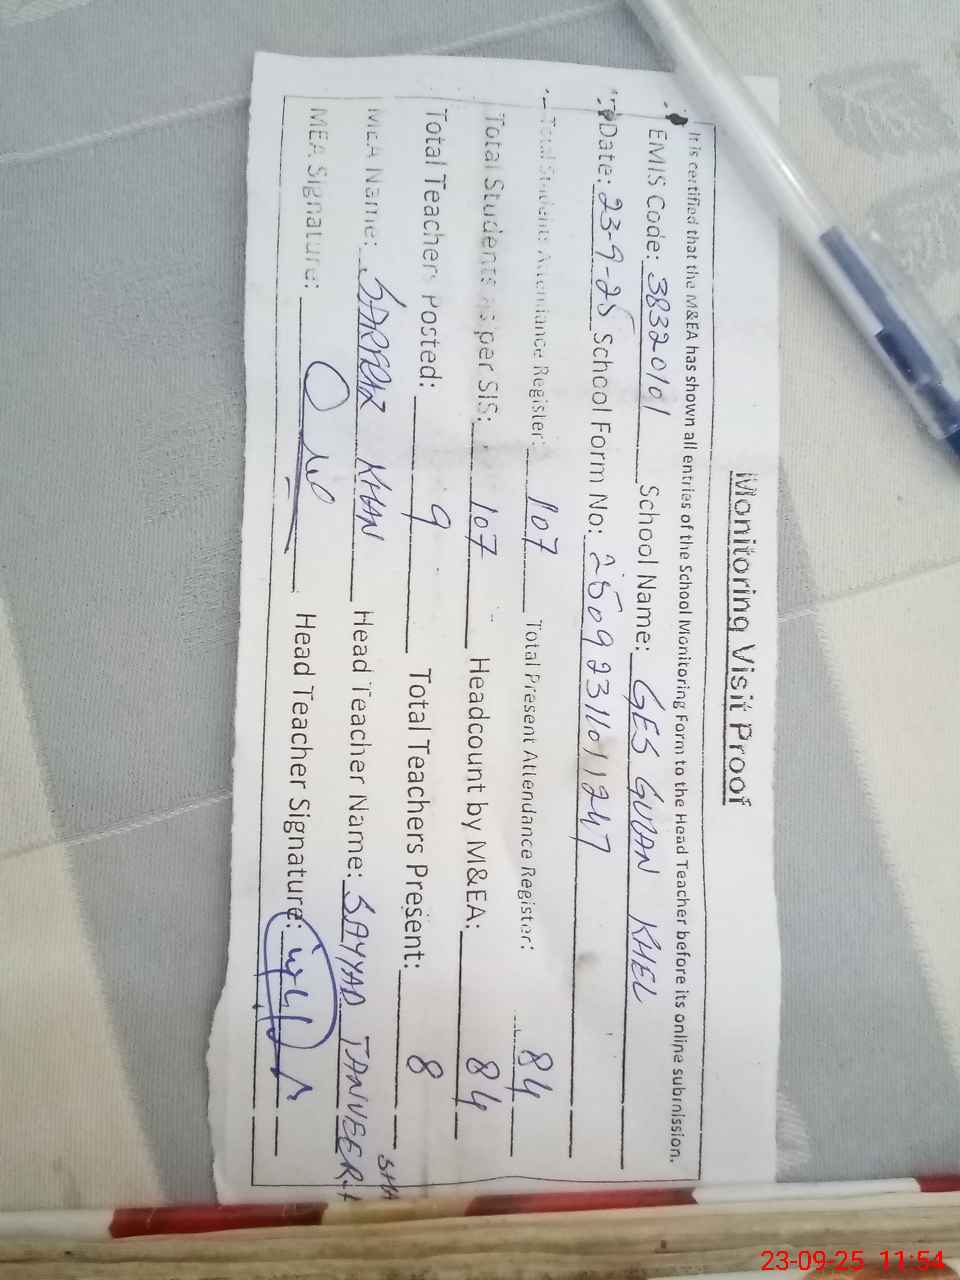 Monitoring Visit Proof
It is certified that the M&EA has shown all entries of the School Monitoring Form to the Head Teacher before its online submission.
EMIS Code: 38320101 School Name: GES GUDAN KHEL
Date: 23-9-25 School Form No: 25092311011247
Total Student Attendance Register: 107 Total Present Attendance Register: 84
Total Students as per SIS: 107 Headcount by M&EA: 84
Total Teachers Posted: 9 Total Teachers Present: 8
MEA Name: SARFRAZ KHAN Head Teacher Name: SAYYAD TANVEER
MEA Signature: Head Teacher Signature:
23-09-25 11:54